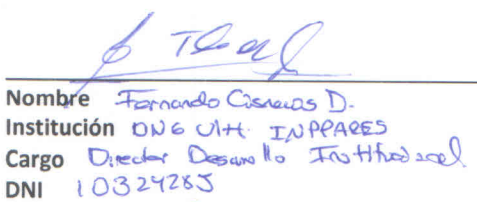 Nombre Fernando Cisneros D.
Institución ONG VIH. INPPARES
Cargo Director Desarrollo Institucional
DNI 10324285